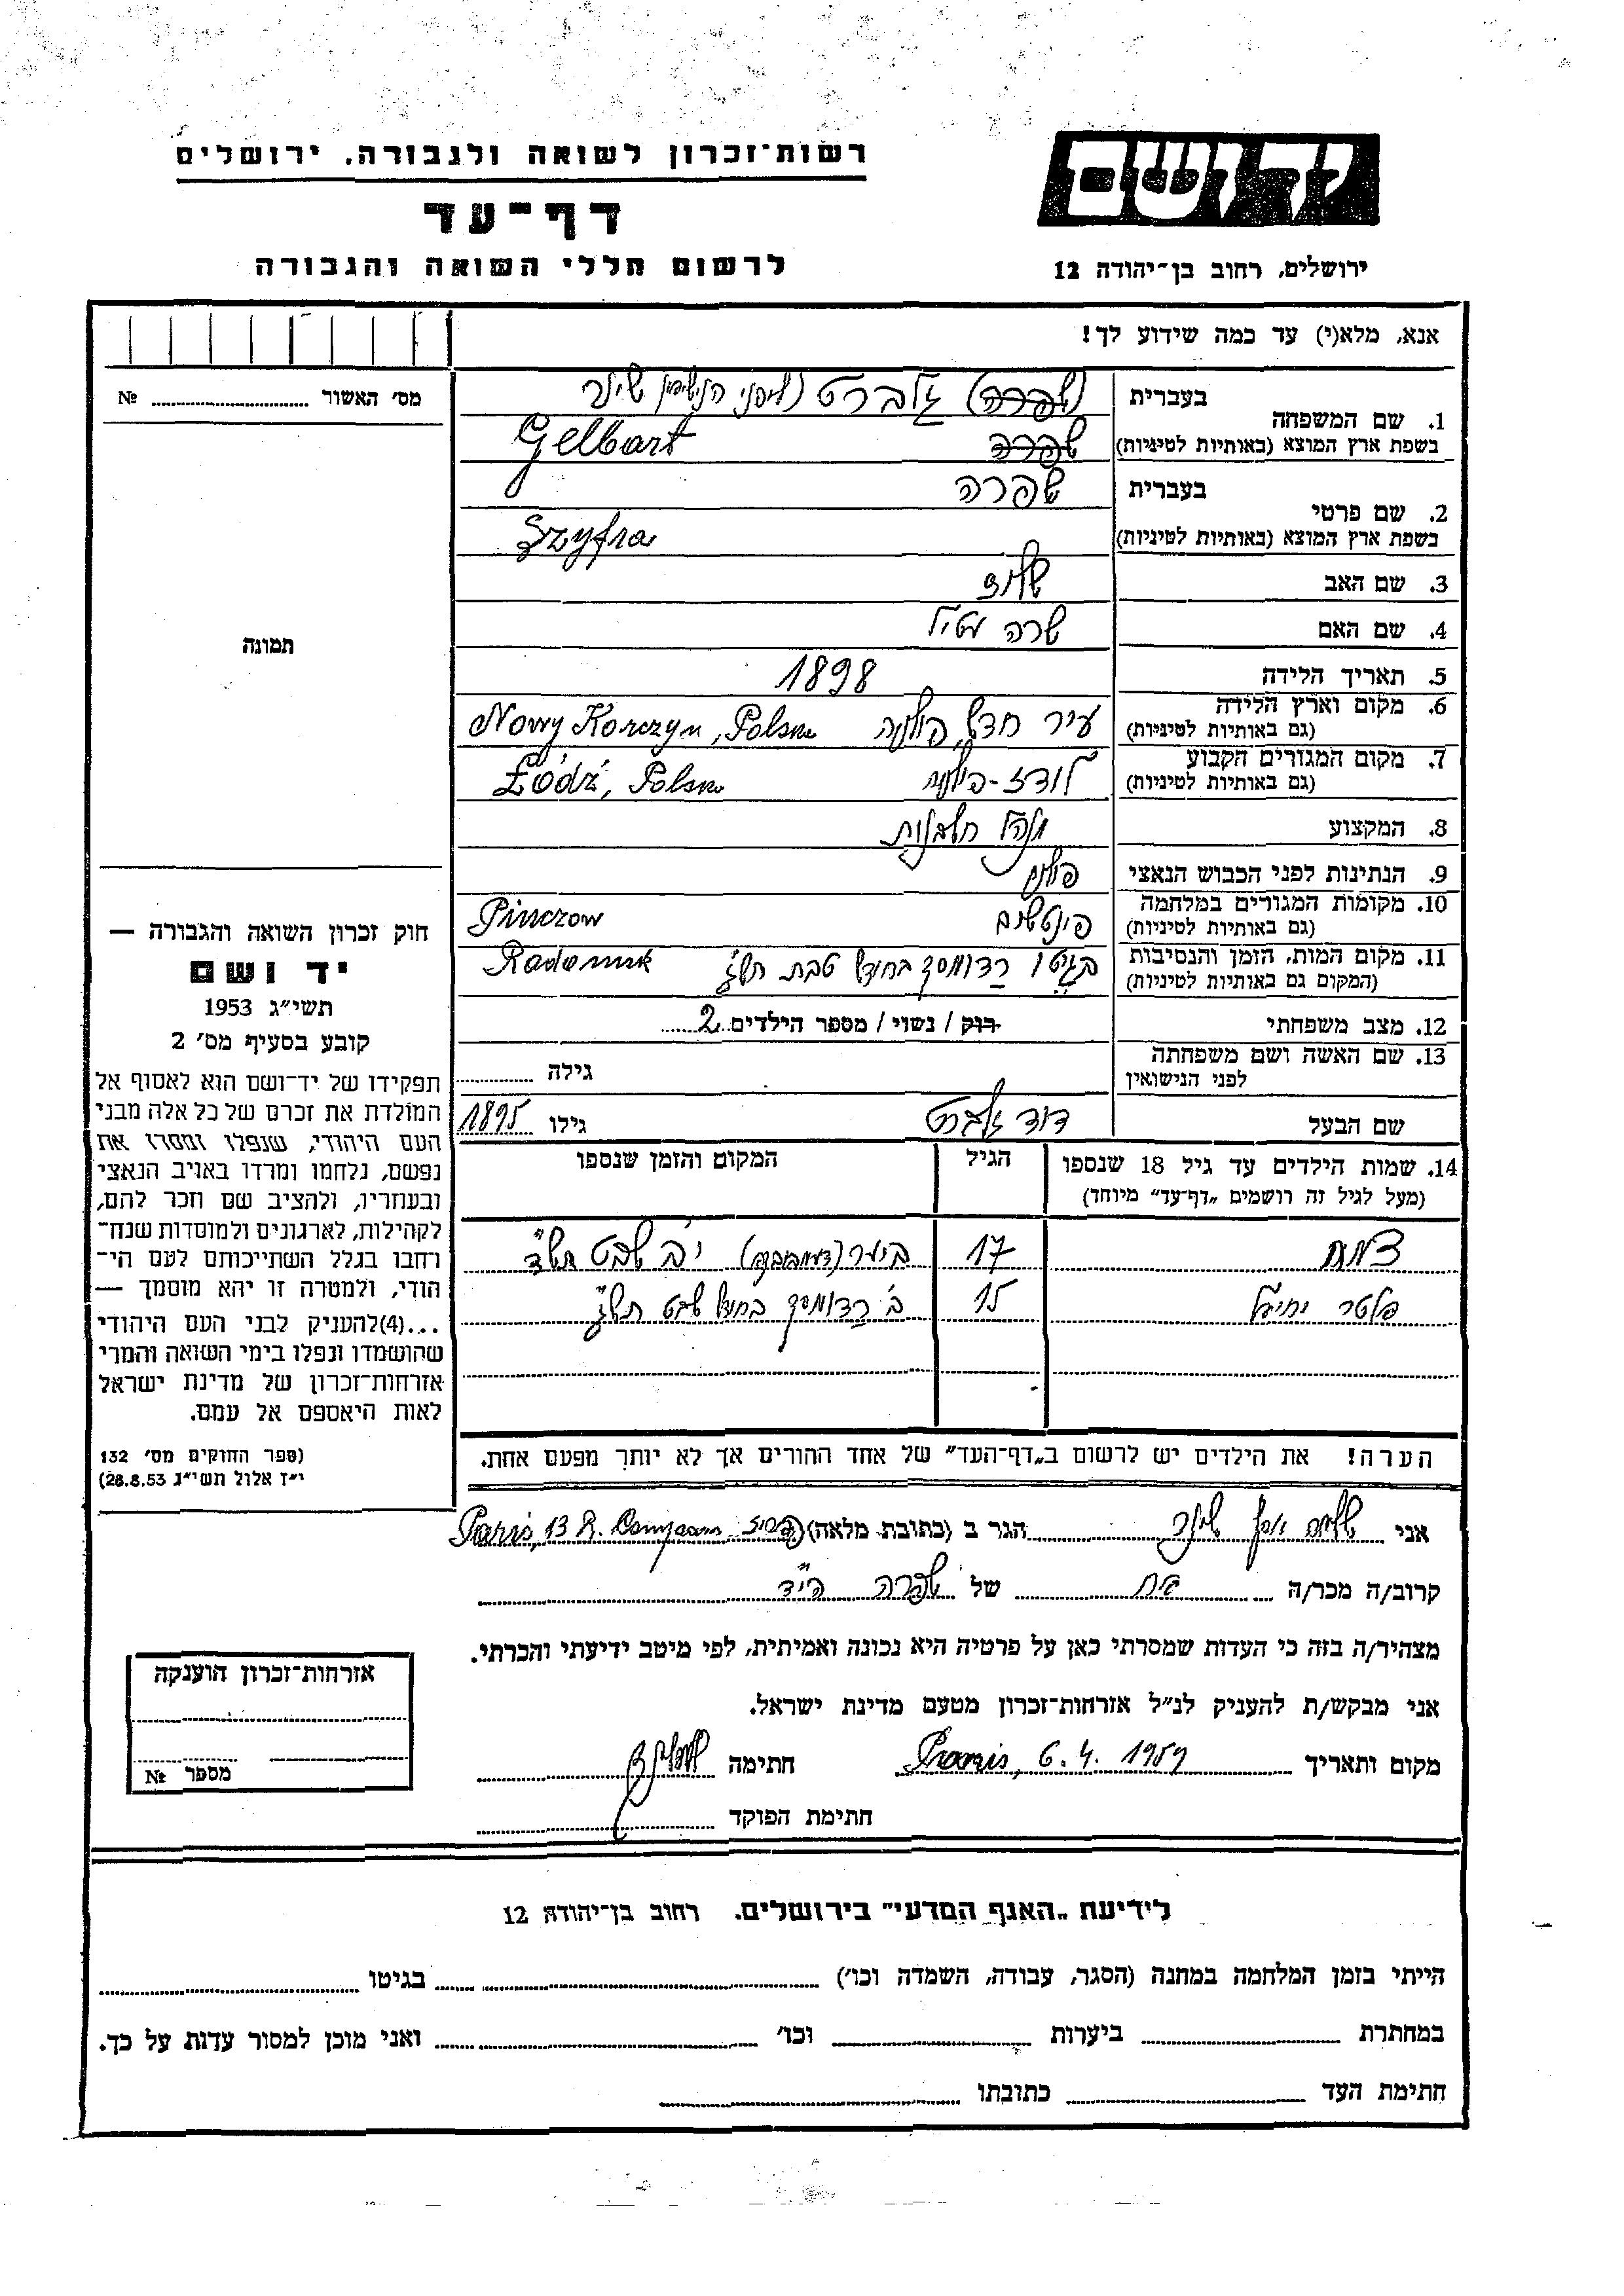 רשות־זכרון לשואה ולגבורה, ירושלים
דף־עד
לרשום חללי השואה והגבורה
יד ושם
ירושלים, רחוב בן־יהודה 12
אנא, מלא(י) עד כמה שידוע לך!
מס׳ האשור № 
תמונה
חוק זכרון השואה והגבורה —
יד ושם
תשי״ג 1953
קובע בסעיף מס׳ 2
תפקידו של יד־ושם הוא לאסוף אל
המולדת את זכרם של כל אלה מבני
העם היהודי, שנפלו ומסרו את
נפשם, נלחמו ומרדו באויב הנאצי
ובעוזריו, ולהציב שם וזכר להם,
לקהילות, לארגונים ולמוסדות שנח־
רחבו בגלל השתייכותם לעם הי־
הודי, ולמטרה זו יהא מוסמך —
...(4)להעניק לבני העם היהודי
שהושמדו ונפלו בימי השואה והמרי
אזרחות־זכרון של מדינת ישראל
לאות היאספם אל עמם.
(ספר החוקים מס׳ 132
י״ז אלול תשי״ג 28.8.53)
1. שם המשפחה
בעברית (שפרה) גלברט (לפני הנישואין שינר
בשפת ארץ המוצא (באותיות לטיניות) שפרה Gelbart
2. שם פרטי
בעברית שפרה
בשפת ארץ המוצא (באותיות לטיניות) Szyfra
3. שם האב
4. שם האם שרה
5. תאריך הלידה 1898
6. מקום וארץ הלידה
(גם באותיות לטיניות) עיר חדש, פולניה Nowy Korczyn, Polska
7. מקום המגורים הקבוע
(גם באותיות לטיניות) לודז-פולניה Łódź, Polska
8. המקצוע
9. הנתינות לפני הכבוש הנאצי פולנית
10. מקומות המגורים במלחמה
(גם באותיות לטיניות) פינטשוב Pinczow
11. מקום המות, הזמן והנסיבות
(המקום גם באותיות לטיניות) בגיטו רדומסק בחודש טבת תש״ג Radomsk
12. מצב משפחתי רוק / נשוי / מספר הילדים 2
13. שם האשה ושם משפחתה
לפני הנישואין גילה
שם הבעל דוד גלברט גילו 1895
14. שמות הילדים עד גיל 18 שנספו
(מעל לגיל זה רושמים „דף־עד״ מיוחד)
הגיל
המקום והזמן שנספו
17 י״ב שבט תש״ד
פלטר יחיאל 15 ב׳ רדומסק בחודש שבט תש״ג
הערה! את הילדים יש לרשום ב„דף־העד״ של אחד ההורים אך לא יותר מפעם אחת.
אני שינר הגר ב (כתובת מלאה) Paris, 13 R.
קרוב/ה מכר/ה של שפרה הי״ד
מצהיר/ה בזה כי העדות שמסרתי כאן על פרטיה היא נכונה ואמיתית, לפי מיטב ידיעתי והכרתי.
אני מבקש/ת להעניק לנ״ל אזרחות־זכרון מטעם מדינת ישראל.
מקום ותאריך Paris, 6.4.1959 חתימה
חתימת הפוקד
אזרחות־זכרון הוענקה
מספר №
לידיעת „האגף המדעי״ בירושלים. רחוב בן־יהודה 12
הייתי בזמן המלחמה במחנה (הסגר, עבודה, השמדה וכו׳) בגיטו
במחתרת ביערות וכו׳ ואני מוכן למסור עדות על כך.
חתימת העד כתובתו